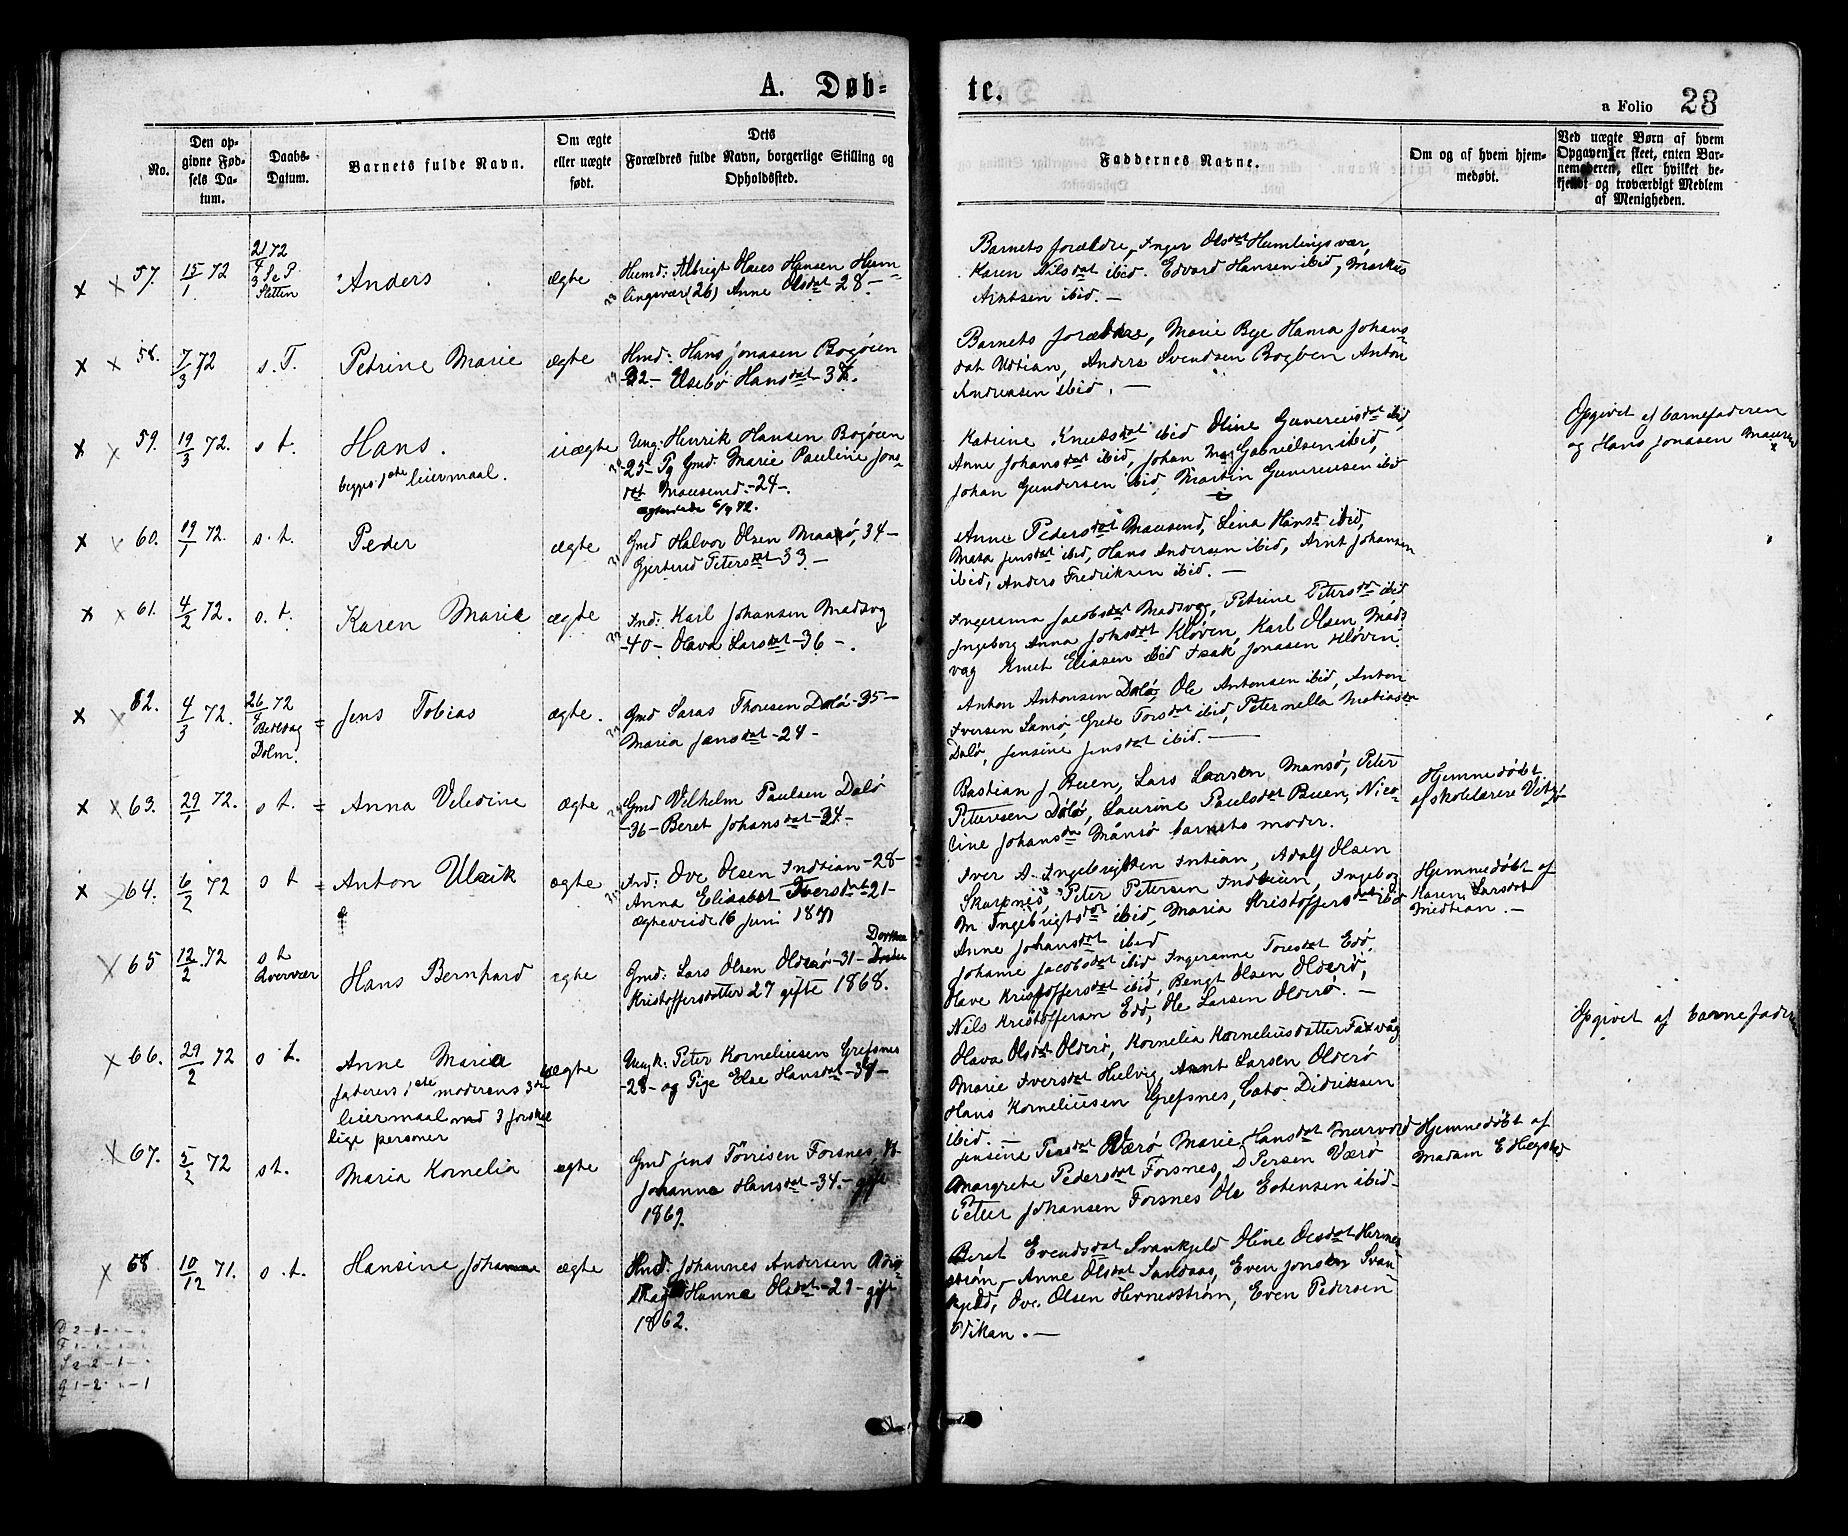 A. Døb=
te.
a Folio 28
No.
Den op-
givne Fød-
sels Da-
tum.
Daabs-
Datum.
Barnets fulde Navn.
Om ægte
eller uægte
født.
Dets
Forældres fulde Navn, borgerlige Stilling og
Opholdssted.
Faddernes Navne.
Om og af hvem hjem-
medøbt.
Ved uægte Børn af hvem
Opgaven er skeet, enten Bar-
nemoderen, eller hvilket be-
kjendt og troværdigt Medlem
af Menigheden.
x x 57. 15/1 72
21/4 72
3 S e P
Sletten
Anders
ægte
Huusmd: Albrigt Haves Hansen Hum-
lingsvær (26) Anne Olsdat 28 –
Barnets forældre, Inger Olsdat Humlingsvær,
Karen Nilsdat ibid. Edvard Hansen ibid, Markus
Arntsen ibid. –
x x 58. 7/3 72
s. T.
Petrine Marie
ægte
Hmd: Hans Jonasen Bogøien
32 – Elsebø Hansdat – 38.
Barnets forældre, Marie Bye Hanna Johans-
dat Udtian, Anders Svendsen Bogøen Anton
Andreasen ibid. –
x x 59. 19/3 72.
s t.
Hans.
begges 1ste leiermaal.
uægte
Ung: Henrik Hansen Bogøien
25 – Pg Gmd: Marie Pauline Jons-
dat Mausund. – 24 –.
Katrine Knutsdat ibid Oline Gunereusdat ibid,
Anne Johansdat ibid, Johan Gabrielsen ibid,
Johan Gundersen ibid, Martin Gunereusen ibid
Opgivet af barnefaderen
og Hans Jonasen Mausun
x x 60. 19/1 72.
s. t.
Peder
ægte
Gmd Halvor Olsen Maasø, 34 –
Gjertrud Petersdat – 33 –
Anne Pedersdat Mausund, Lina Hansd ibid,
Meta Jensdat ibid, Hans Andersen ibid, Arnt Johansen
ibid, Anders Fredriksen ibid. –
x x 61. 4/2 72.
s. t.
Karen Marie
ægte
Ind: Karl Johansen Madsvg
– 40 – Olava Larsdat – 36 –.
Ingerinna Jacobsdat Madsvag, Petrine Petersdat ibid
Ingeborg Anna Johsdat Kløven, Karl Olsen Mads
vag Knut Eliasen ibid Isak Jonasen Kløven.
x x 62. 4/3 72.
26/4 72
Bedevag
Dolm.
= Jens Tobias
ægte.
Gmd Saras Thoresen Dolø – 35 –
Maria Jænsdat – 24 –
Anton Antonsen Dolø, Ole Antonsen ibid, Anton
Iversen Samø, Grete Torsdat ibid, Peternella Matiasda
Dalø, Jensine Jensdat ibid. –
x x 63. 29/1 72.
s t.
= Anna Veledine
ægte
Gmd Vilhelm Paulsen Dolø
– 36 – Beret Johansdat – 34 –.
Bastian J. Buen, Lars Larsen Mansø, Peter
Petersen Dolø, Laurine Paulsdat Buen, Nico-
line Johansda Månsø barnets moder.
Hjemmedøbt
af skolelærer Vitsø
x x 64. 6/2 72
s t
= Anton Ulrik
ægte
Ind: Ove Olsen Indtian – 28 –
Anna Elisabet Iversdat – 21 –
ægteviede 16 Juni 1871
Iver A. Ingebrigtsen Intian, Adolf Olsen
Skarpnes, Peter Petersen Indtian, Ingebog
M Ingebrigtsdat ibid, Maria Kristoffersdat ibid
Anne Johansdat ibid
Hjemmedøbt af
Karen Larsdat
Midtian. –
x 65 12/2 72
s t
Kverver
Hans Bernhard
ægte
Gmd: Lars Olsen Olderø – 31 – Dorthea
Kristoffersdatter 27 gifte 1868.
Johanne Jacobsdat ibid Ingeranne Toresdat Edø,
Olave Kristoffersdat ibid, Bengt Olsen Olderø,
Nils Kristoffersen Edø, Ole Larsen Olderø. –
x 66. 29/2 72
s t.
Anne Maria
faderens 1ste moderens 3die
leiermaal med 3 forskjel
lige personer
uægte
Ungk: Peter Korneliusen Grefsnes
– 28 – og Pige Else Hansdat – 34 –
Olava Olsdat Olderø, Kornelia Korneliusdatter Faxvåg
Marie Iversdat Hulvig, Arnt Larsen Olderø
Hans Korneliusen Grefsnes, Cato Didriksen
ibid. –
Opgivet af barnefaderen
x 67. 5/2 72
st.
Maria Kornelia
ægte
Gmd Jens Torrisen Forsnes,
Johanna Hansdat – 34. – gift
1869.
Jensine Peasdat Værø, Marie Hansdat Murvold
Margrete Pedersdat Forsnes, D Persen Værø
Peter Johansen Forsnes Ole Estensen ibid –
Hjemmedøbt af
Madam E Hegstad
x 68. 10/12 71.
s. t.
Hansine Johanna
ægte
Hmd: Johannes Andersen
Hanna Olsdat – 29 – gift
1862.
Beret Evendsdat Svankjeld Oline Olsdat Hernes
strøm, – Anne Olsdat Sandaas, Even Jonsen Svan
kjeld, Ove Olsen Hernesstrøm, Even Pedersen
Vikan. –